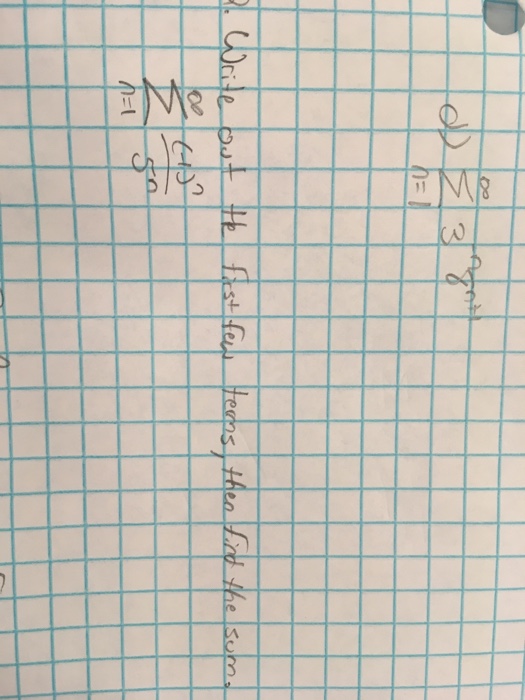 d) ∞ Σ n=1 3⁻ⁿ8ⁿ⁺¹
. Write out the first few terms, then find the sum.
∞ Σ n=1 (-1)ⁿ / 5ⁿ